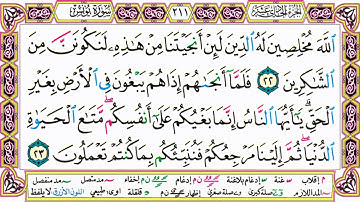 سورة يونس
٢١١
الجزء الحادي عشر
ٱللَّهَ مُخۡلِصِينَ لَهُ ٱلدِّينَ لَئِنۡ أَنجَيۡتَنَا مِنۡ هَٰذِهِۦ لَنَكُونَنَّ مِنَ
ٱلشَّٰكِرِينَ ٢٢ فَلَمَّآ أَنجَىٰهُمۡ إِذَا هُمۡ يَبۡغُونَ فِي ٱلۡأَرۡضِ بِغَيۡرِ
ٱلۡحَقِّۗ يَٰٓأَيُّهَا ٱلنَّاسُ إِنَّمَا بَغۡيُكُمۡ عَلَىٰٓ أَنفُسِكُمۖ مَّتَٰعَ ٱلۡحَيَوٰةِ
ٱلدُّنۡيَاۖ ثُمَّ إِلَيۡنَا مَرۡجِعُكُمۡ فَنُنَبِّئُكُم بِمَا كُنتُمۡ تَعۡمَلُونَ ٢٣